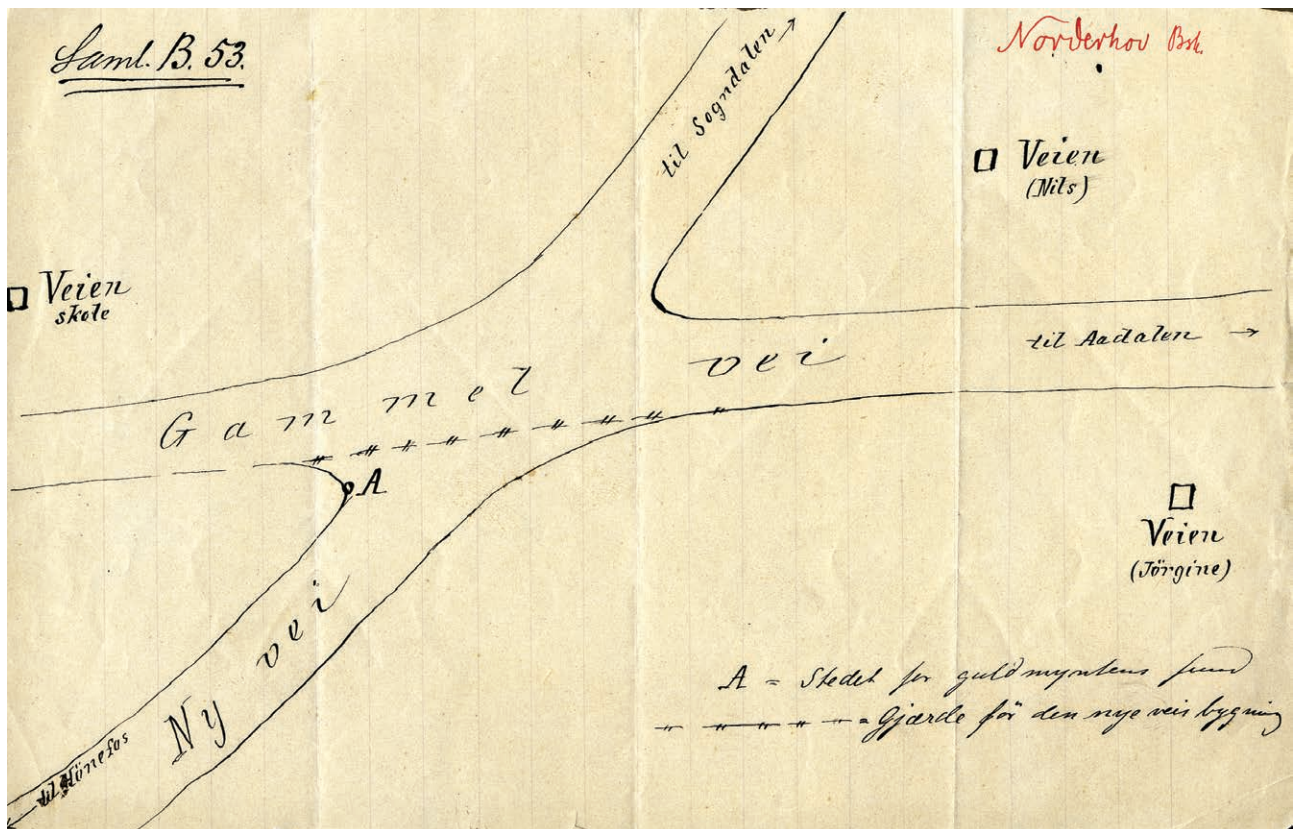 Saml. B. 53.
Norderhov Bsk.
til Sogndalen
Veien
(Nils)
Veien
skole
til Aadalen
Gammel vei
A
Veien
(Jörgine)
Ny vei
til Hönefos
A = Stedet for guldmyntens fund
= Gjærde för den nye veis bygning